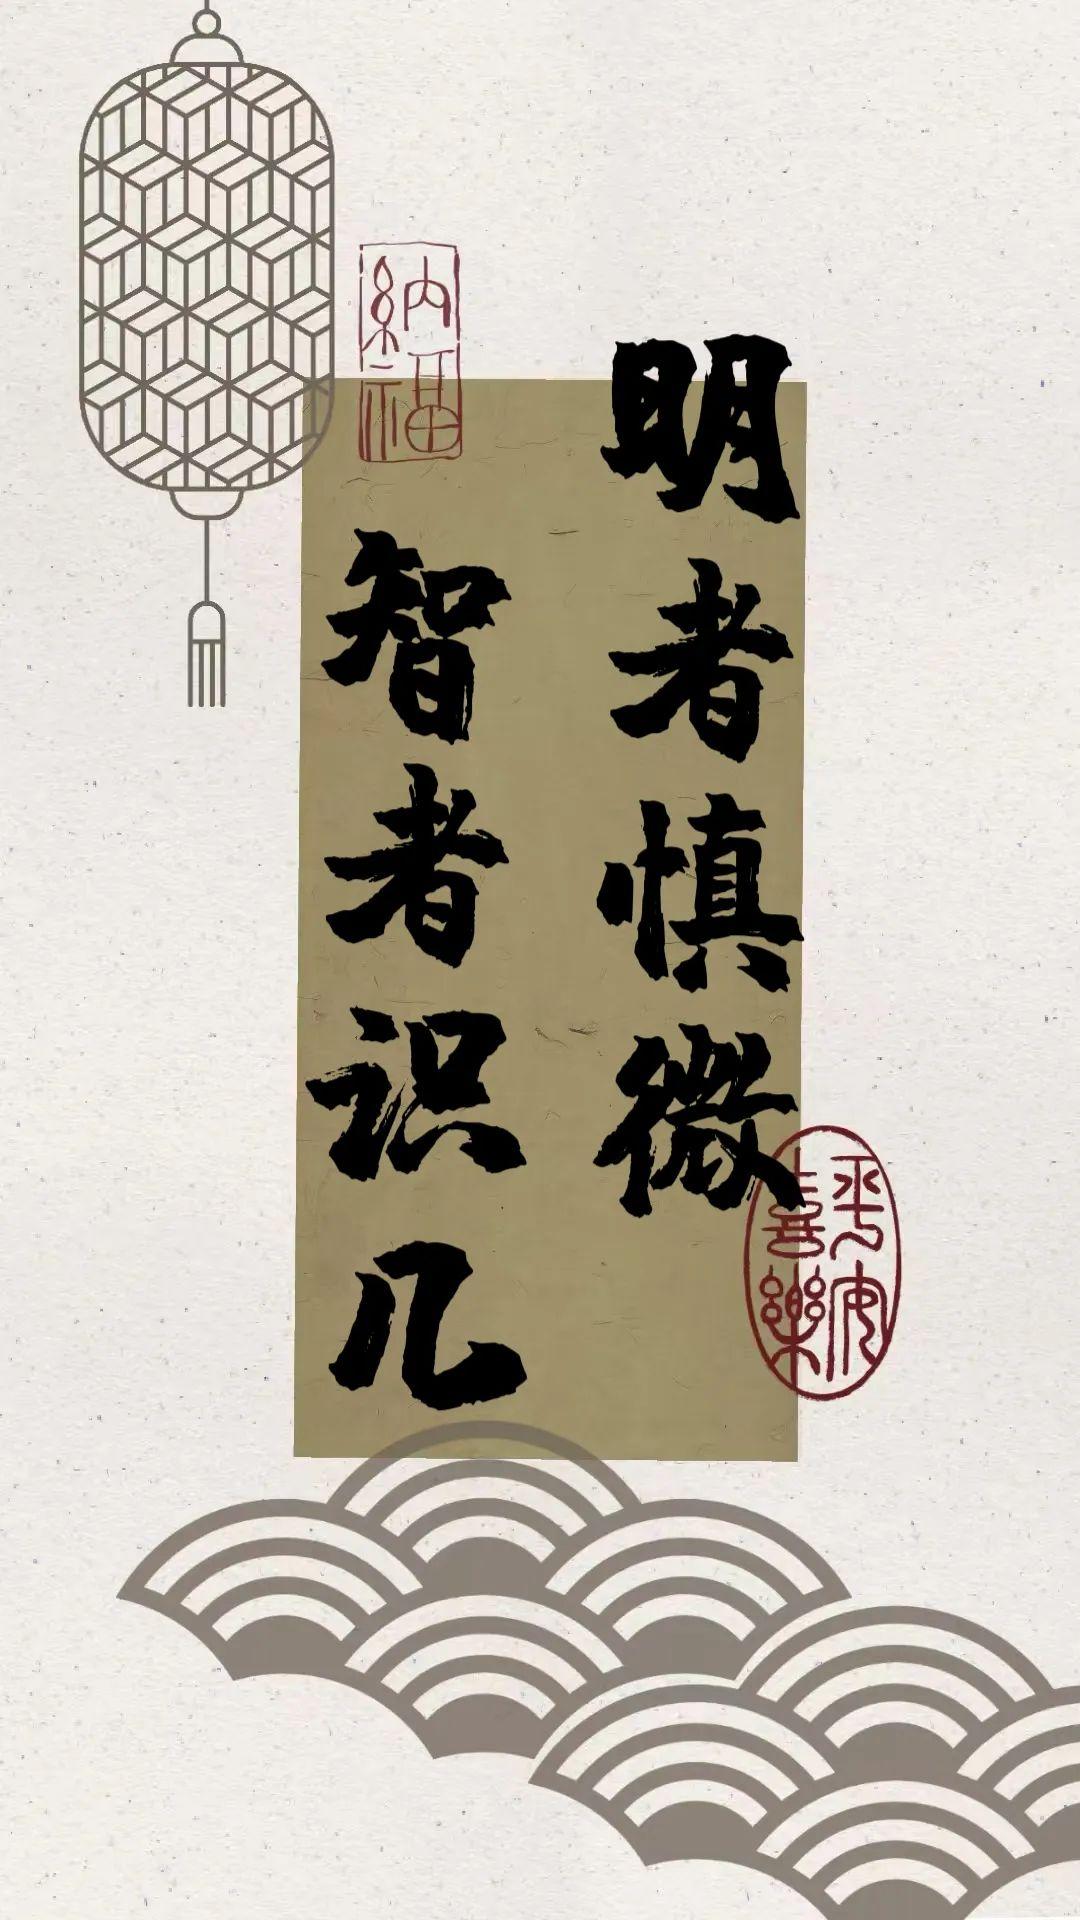 明者慎微
智者识几
納福
平安
喜樂